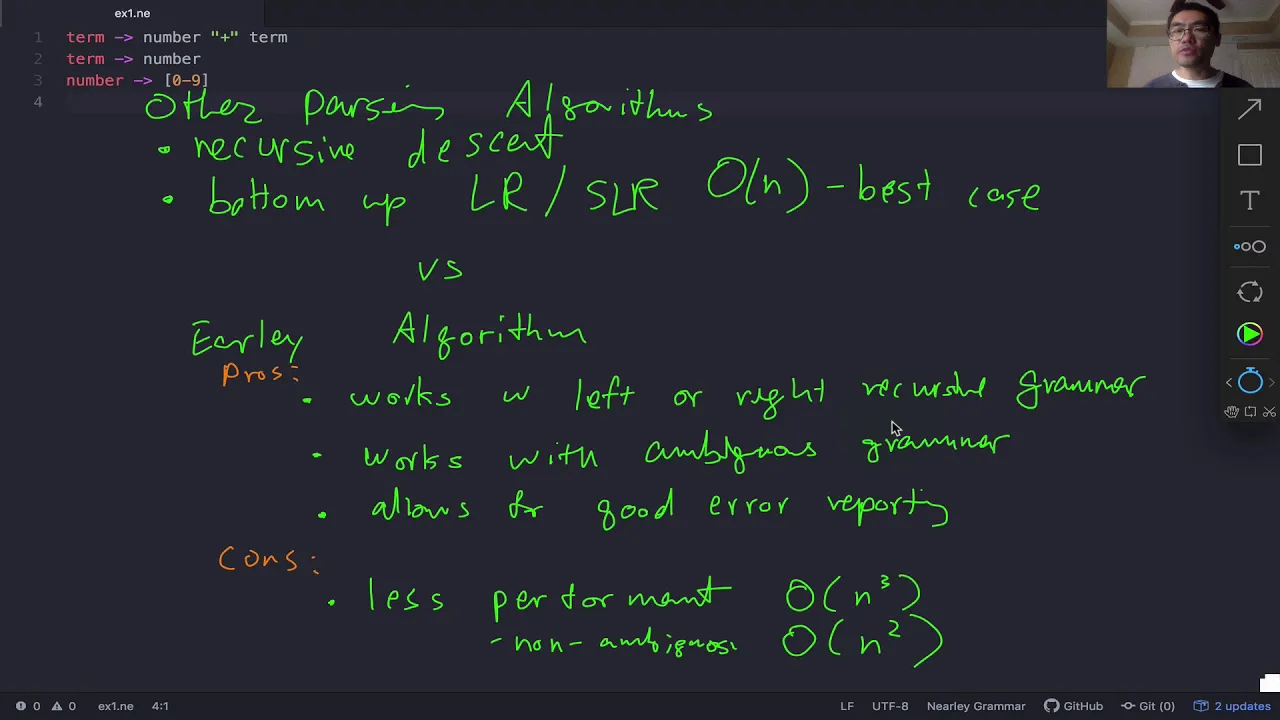 ex1.ne
1 term -> number "+" term
2 term -> number
3 number -> [0-9]
4
Other Parsing Algorithms
• recursive descent
• bottom up LR / SLR O(n) - best case
vs
Earley Algorithm
Pros:
• works w left or right recursive grammar
• works with ambiguous grammar
• allows for good error reporting
Cons:
• less performant O(n³)
- non-ambiguous O(n²)
T
0 0 ex1.ne 4:1 LF UTF-8 Nearley Grammar GitHub Git (0) 2 updates